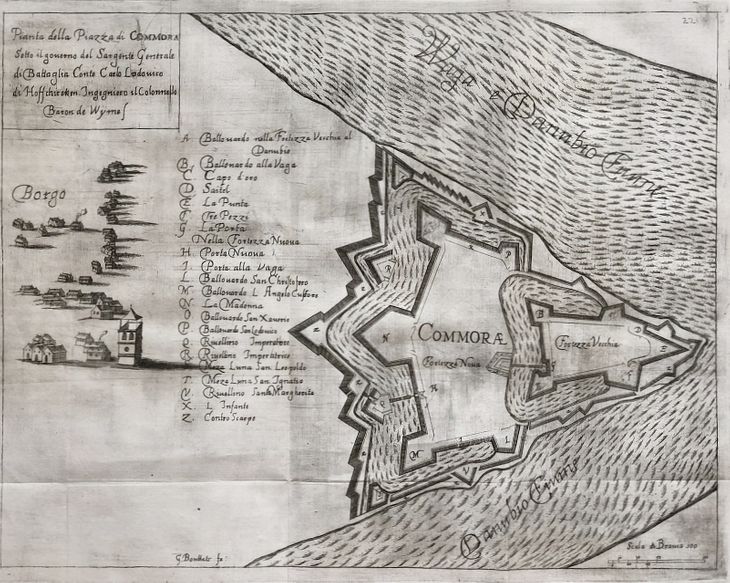 22
Pianta della Piazza di COMMORA
Sotto il governo del Sargente Generale
di Battaglia Conte Carlo Lodovico
di Hoffchircken Ingegniero il Colonnello
Baron de Wÿmes
Borgo
A Ballouardo nella Fortezza Vecchia al
Danubio
B. Ballouardo alla Vaga
C Capo d'oro
D Saitel
E La Punta
F Tre Pezzi
G La Porta
Nella Fortezza Nuoua
H Porta Nuoua
I Porta alla Vaga
L. Ballouardo San Christofero
M. Ballouardo L Angelo Custore
N La Madonna
O Ballouardo San Xauerio
P. Ballouardo San Lodouico
Q. Riuellino Imperatore
R Riuelino Imperatrice
Meza Luna San Leopoldo
T. Meza Luna San Ignatio
V. Riuellino Santa Margherita
X. L Infante
Z. Contro Scarpe
Waga e Danubio Fiume
COMMORÆ
Fortezza Noua
Fortezza Vecchia
Danubio Fiume
G Bouttats fe:
Scala di Braccia 300